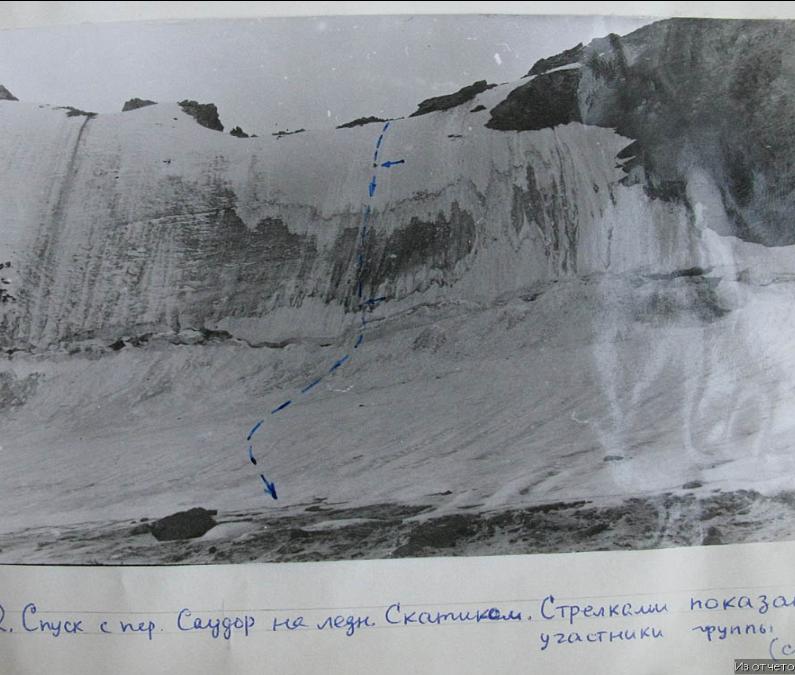 2. Спуск с пер. Саудор на ледн. Скатиком. Стрелками показан
участники группы
(с
Из отчето